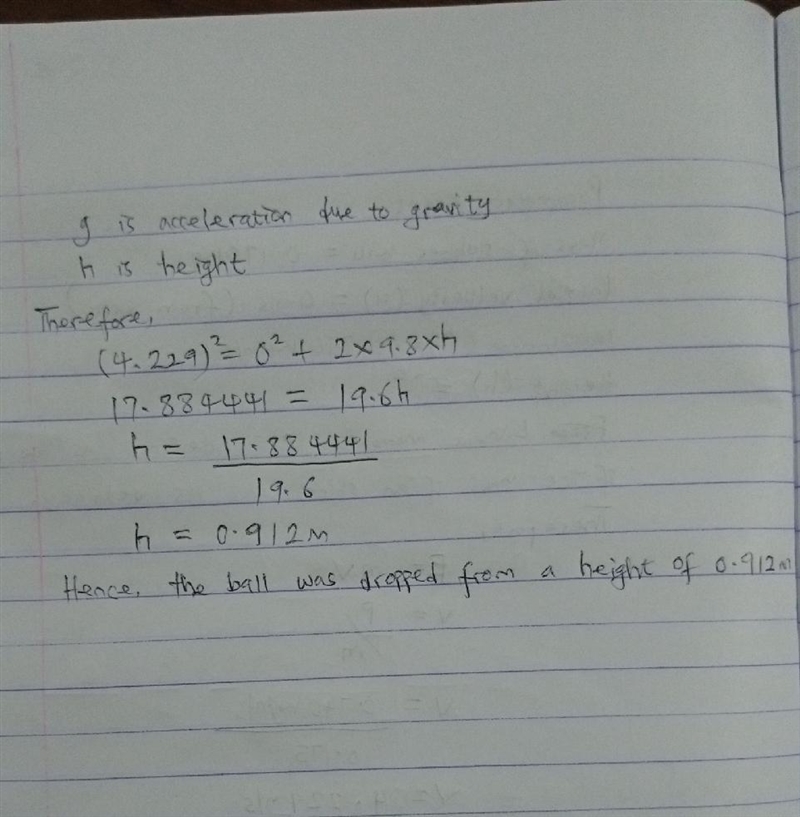 g is acceleration due to gravity
h is height
Therefore,
(4.229)² = 0² + 2×9.8×h
17.884441 = 19.6h
h = 17.884441
19.6
h = 0.912m
Hence, the ball was dropped from a height of 0.912m